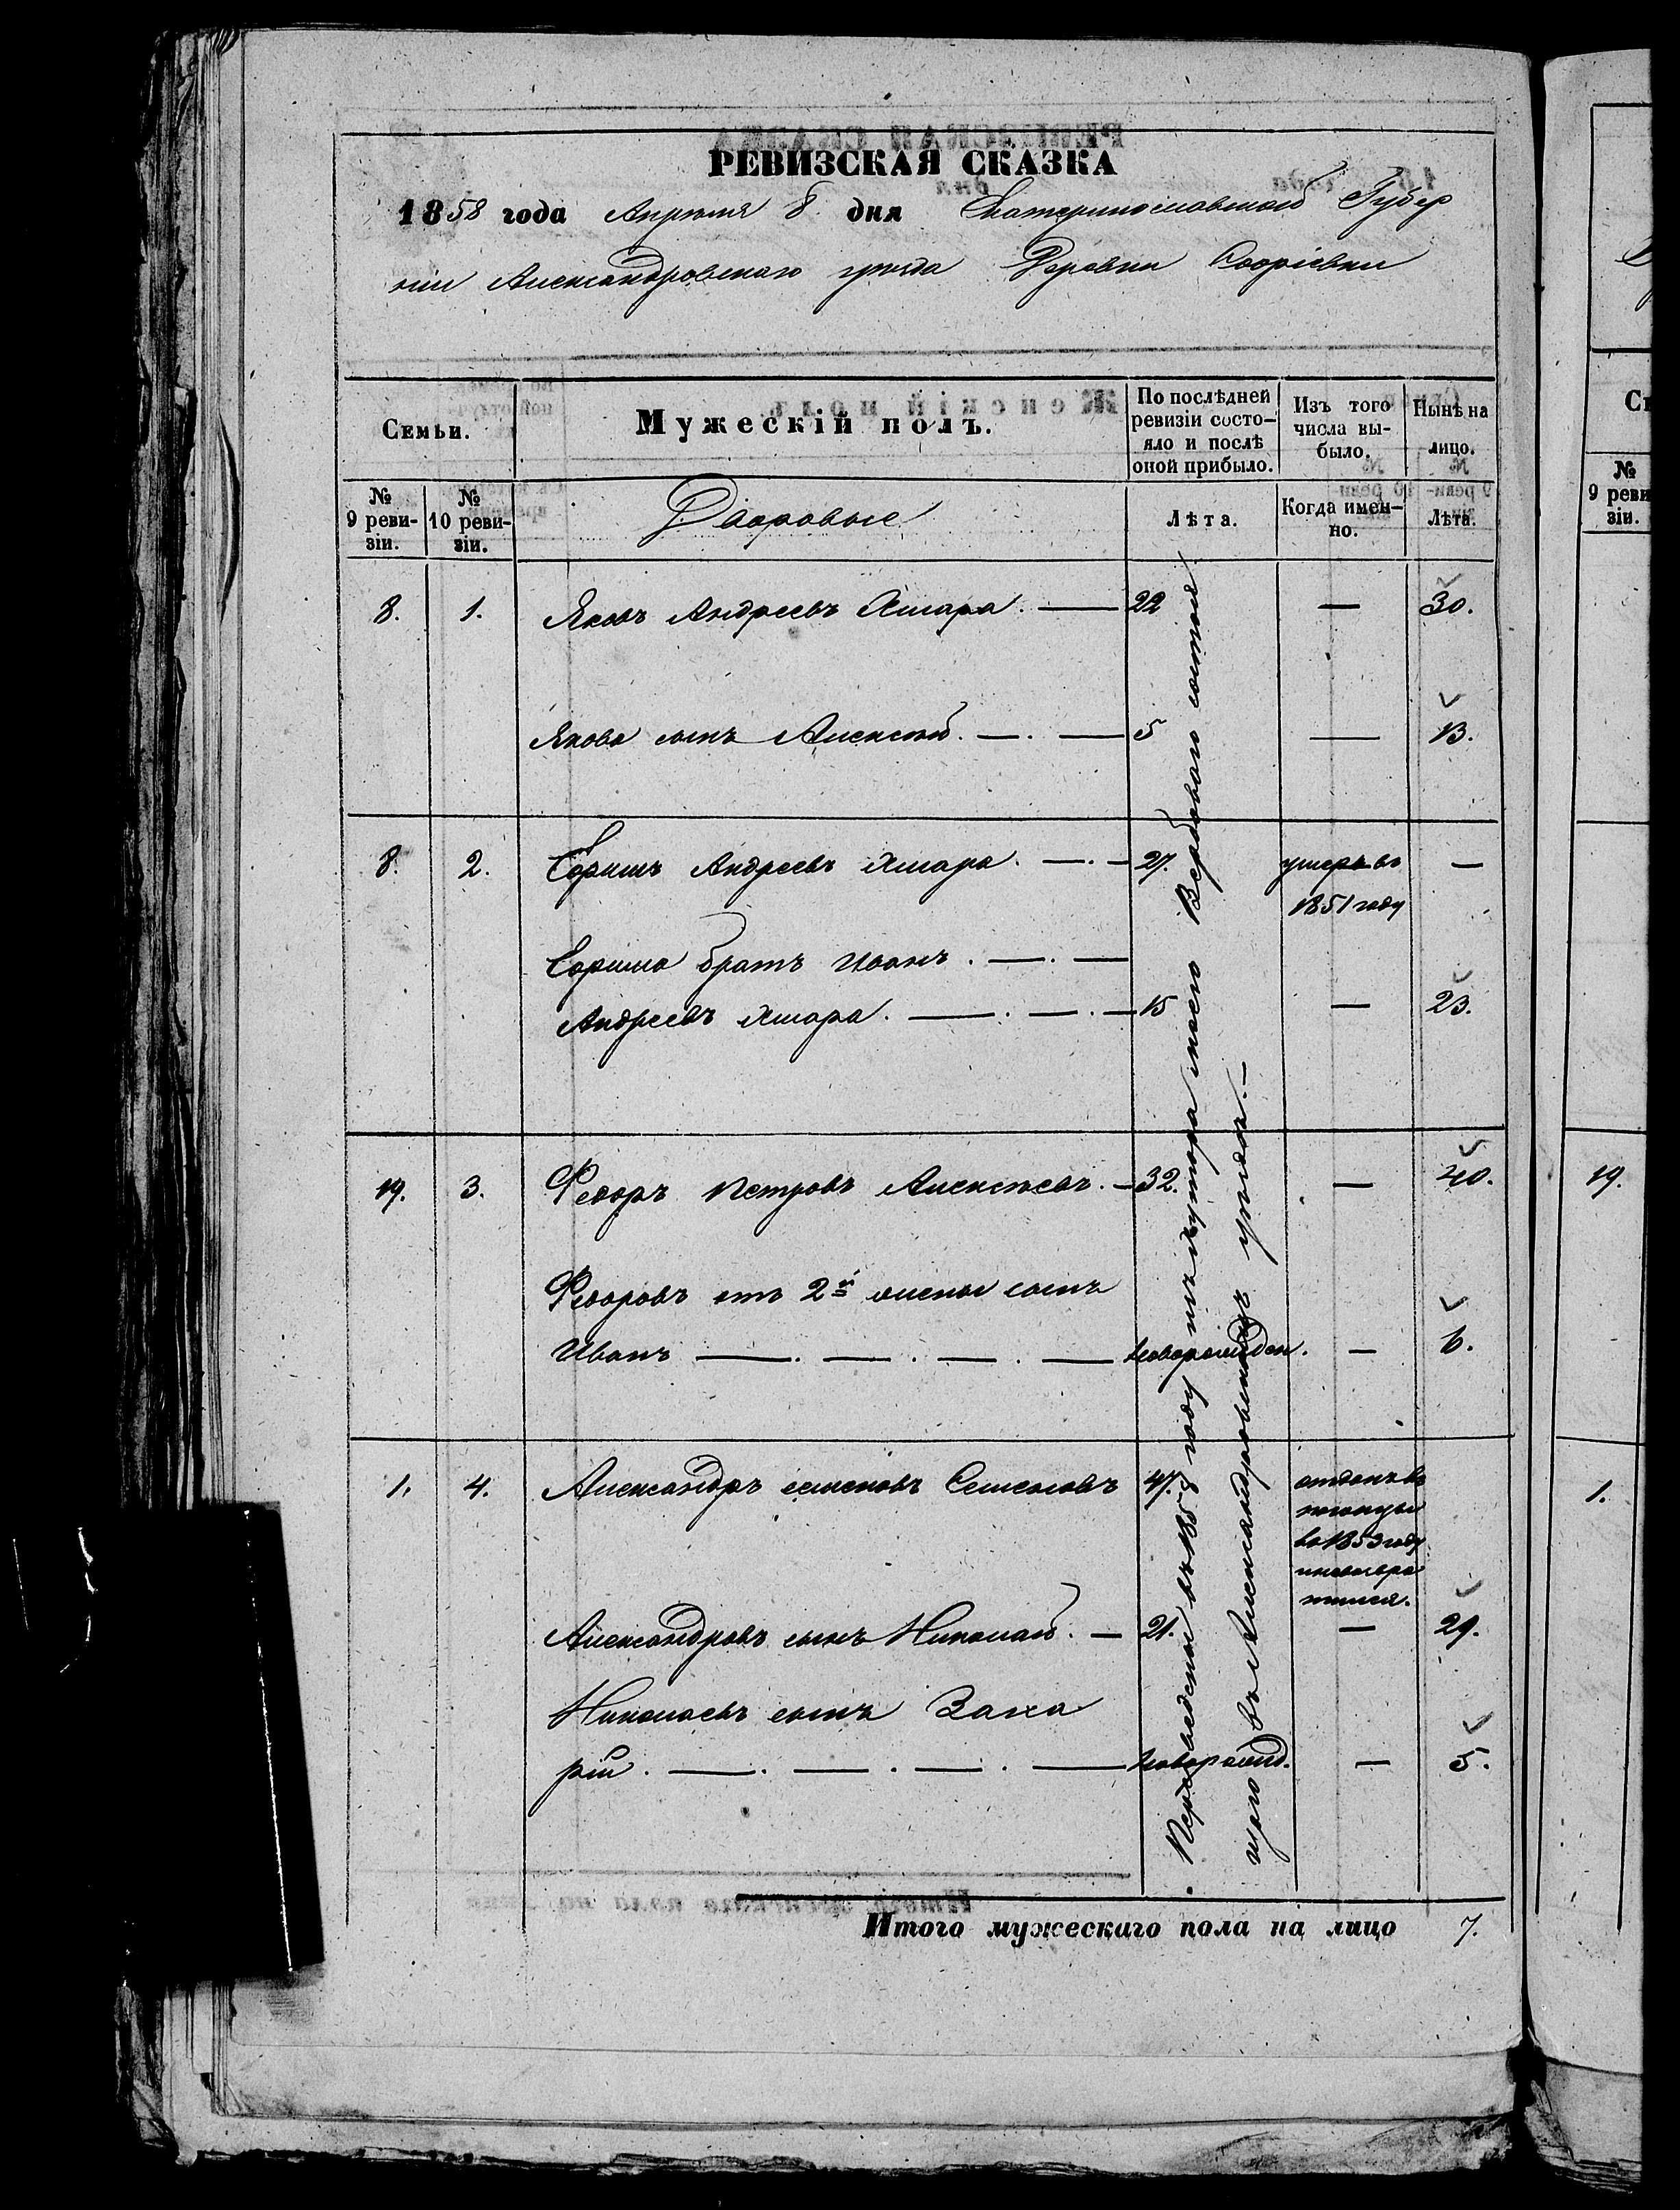 РЕВИЗСКАЯ СКАЗКА
1858 года Апреля 8 дня Екатеринославской Губер
нии Александровскаго уезда Деревни
Семьи.
Мужескій полъ.
По послѣдней ревизіи состо-
яло и послѣ
оной прибыло.
Изъ того числа вы-
было.
Нынѣ на лицо.
№ 9 реви-
зіи.
№ 10 реви-
зіи.
Дворовые
Лѣта.
Когда имен-
но.
Лѣта.
8. 1. Яковъ Андреевъ Хмара. — 22 — 30.
Якова сынъ Алексей. — . — 5 — 13.
8. 2. Ефимъ Андреевъ Хмара. — . — 27. умеръ въ
1851 году —
Ефима братъ Иванъ. — . —
Андреевъ Хмара. — . — . — 15 — 23.
19. 3. Федоръ Петровъ Алексѣевъ. — 32. — 40.
Федоровъ отъ 2й жены сынъ
Иванъ — . — . — . — новорожден. — 6.
1. 4. Александръ Семеновъ Семеновъ 47. отданъ въ
во 1853 году
Александровъ сынъ Николай. — 21. — 29.
Николаевъ сынъ Заха
рій. — . — . — . — новорожд. — 5.
Переведены въ 1858 году изъ хутора моего Вербоваго состоя
щаго въ Александровскомъ уѣздѣ. —
Итого мужескаго пола на лицо 7.
№ 9 реви
зіи.
19.
1.